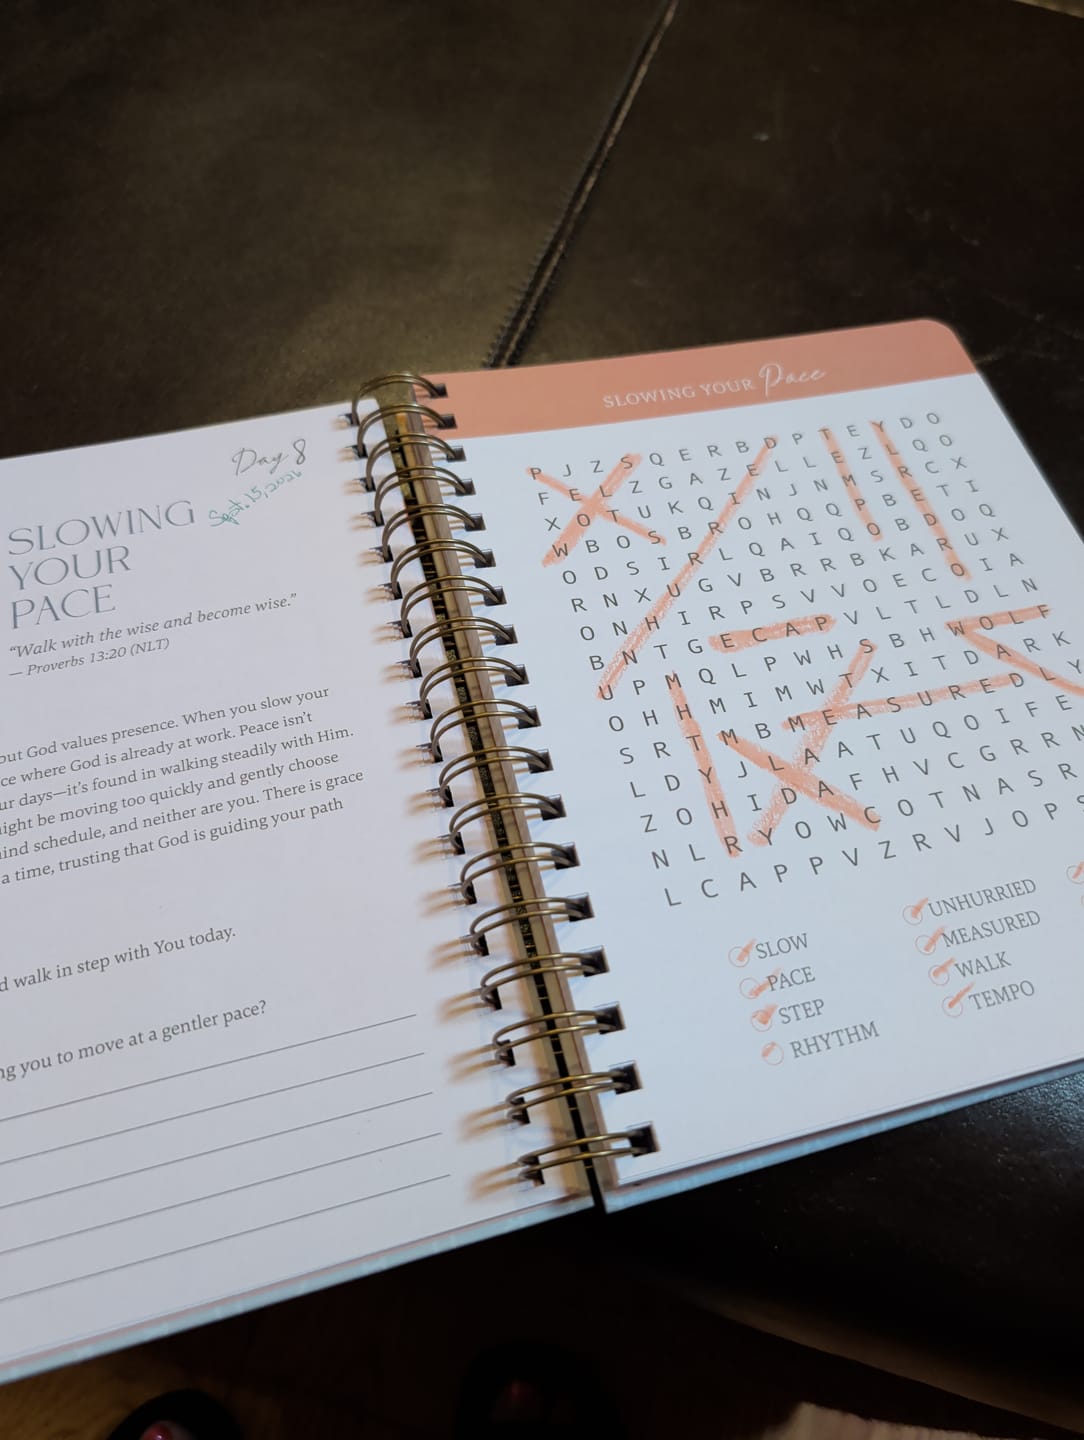 Day 8
Sept. 15, 2026
SLOWING
YOUR
PACE
“Walk with the wise and become wise.”
— Proverbs 13:20 (NLT)
but God values presence. When you slow your
ce where God is already at work. Peace isn’t
ur days—it’s found in walking steadily with Him.
ight be moving too quickly and gently choose
ind schedule, and neither are you. There is grace
a time, trusting that God is guiding your path
d walk in step with You today.
ng you to move at a gentler pace?
SLOWING YOUR Pace
P J Z S Q E R B D P T E Y D O
F E L Z G A Z E L L E Z L Q O
X O T U K Q I N J N M S R C X
W B O S B R O H Q Q P B E T I
O D S I R L Q A I Q O B D O Q
R N X U G V B R R B K A R U X
O N H I R P S V V O E C O I A
B N T G E C A P V L T L D L N
U P M Q L P W H S B H W O L F
O H H M I M W T X I T D A R K
S R T M B M E A S U R E D L Y
L D Y J L A A T U Q O I F E
Z O H I D A F H V C G R R N
N L R Y O W C O T N A S R
L C A P P V Z R V J O P S
SLOW
PACE
STEP
RHYTHM
UNHURRIED
MEASURED
WALK
TEMPO